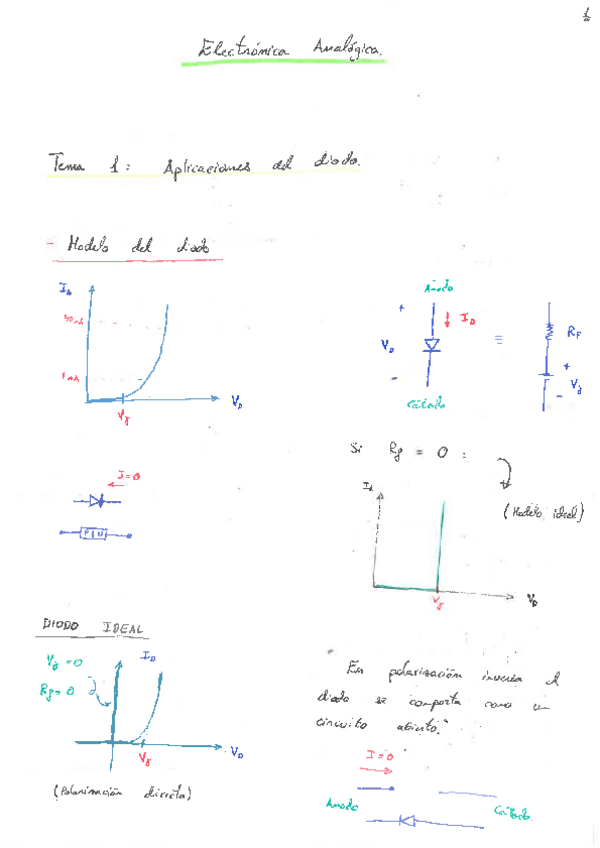 1/2
Electrónica Analógica.
Tema 1: Aplicaciones del diodo.
- Modelo del diodo
I_D
1 mA
V_γ
V_D
Ánodo
+
V_D
I_D
-
Cátodo
≡
R_F
+
V_γ
-
I=0
P | N
Si R_f = 0 :
(Modelo ideal)
I_D
V_γ
V_D
DIODO IDEAL
V_γ = 0
R_f = 0
I_D
V_γ
V_D
(Polarización directa)
"En polarización inversa el
diodo se comporta como un
circuito abierto."
I=0
Ánodo
Cátodo